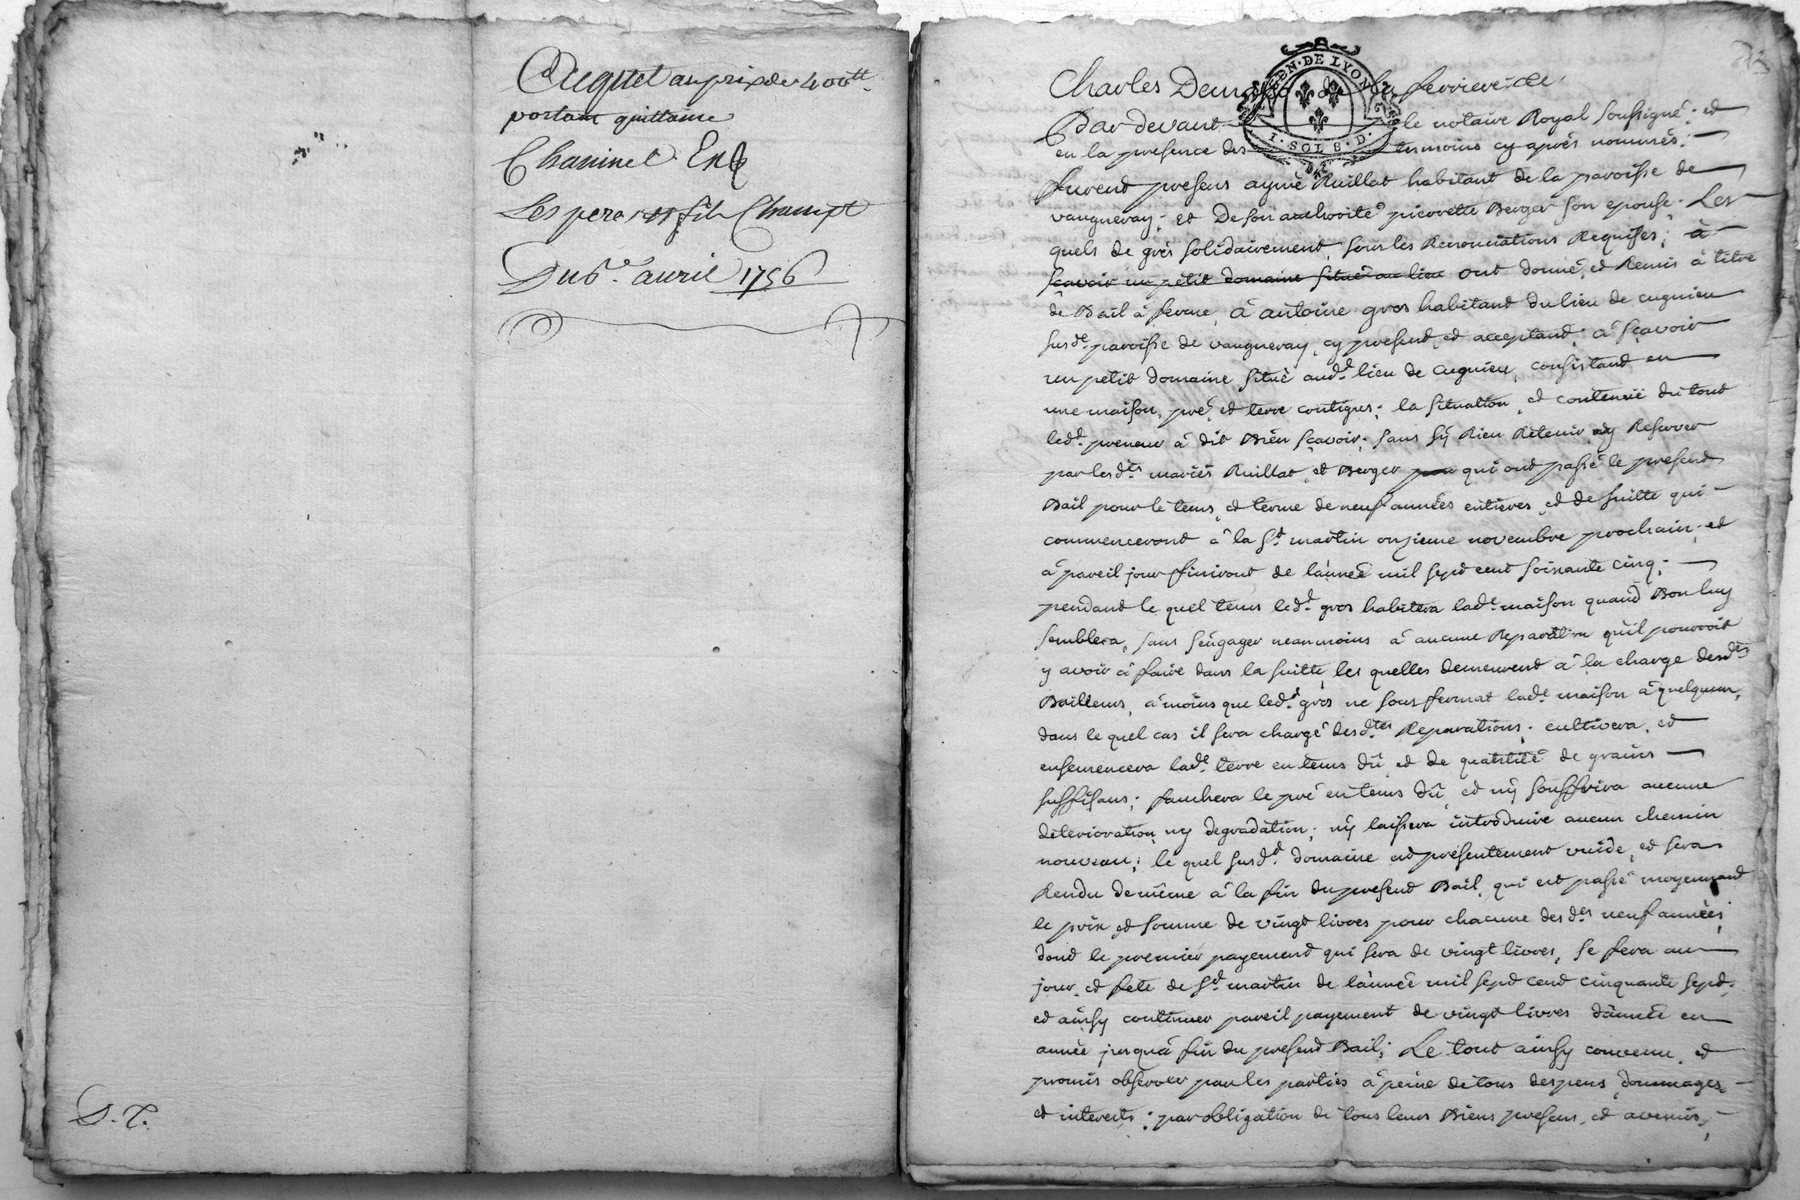 Acquet au prix de 400tt
portant quittance
Chaninel
Les pere et fils
Du 6e avril 1756
D. T.
GEN · DE LYON
I · SOL 8 · D
Charles de la ferriere de
Par devant le notaire Royal soussigné; et
en la presence des temoins cy après nommés;
furent presens aymé Ruillat habitant de la paroisse de
vaugneray; et de son authorité pierrette Berger son epouse. Les
quels de grés solidairement, sous les Renonciations Requises; à
scavoir un petit domaine situé au lieu ont donné, et Remis à titre
de Bail à ferme, à antoine gros habitant du lieu de cugnieu
susde. paroisse de vaugneray, cy present, et acceptant; à sçavoir
un petit domaine situé aud.t lieu de cugnieu, consistant en
une maison, pré, et terre contigus; la situation, et contenüe du tout
led.t preneur à dit Bien sçavoir; sans sÿ Rien Retenir, ny Reserver
par lesd.ts mariés Ruillat, et Berger qui ont passé le present
Bail pour le tems, et terme de neuf années entieres, et de suitte qui
commenceront à la St. martin onzieme novembre prochain; et
à pareil jour finiront de lànneé mil sept cent soixante cinq;
pendant le quel tems led.t gros habitera lad.e maison quand Bon luy
semblera, sans sèngager neanmoins à aucune Reparation qu'il pourroit
y avoir à faire dans la suitte, les quelles demeurent à la charge desd.ts
Bailleurs, à moins que led.t gros ne sous fermat lad.e maison à quelquun,
dans le quel cas il sera chargé desd.tes Reparations; cultivera, et
ensemencera lad.e terre en tems dû, et de quatitité de grains
suffisans; fauchera le pré en tems dû, et nÿ souffrira aucune
deterioration, ny degradation; nÿ laissera introduire aucun chemin
nouveau; le quel susd.t domaine est presentement vuide, et sera
Rendu de même à la fin du present Bail, qui est passé moyennant
le prix, et somme de vingt livres pour chacune desd.es neuf années;
dont le premier payement qui sera de vingt livres, se fera au
jour, et fete de St. martin de lànneé mil sept cent cinquante sept;
et ainsy continuer pareil payement de vingt livres dànneé en
année, jusquà fin du present Bail; Le tout ainsy convenu, et
promis observer par les parties à peine de tous despens, dommages,
et interets; par obligation de tous leurs Biens presens, et avenir,